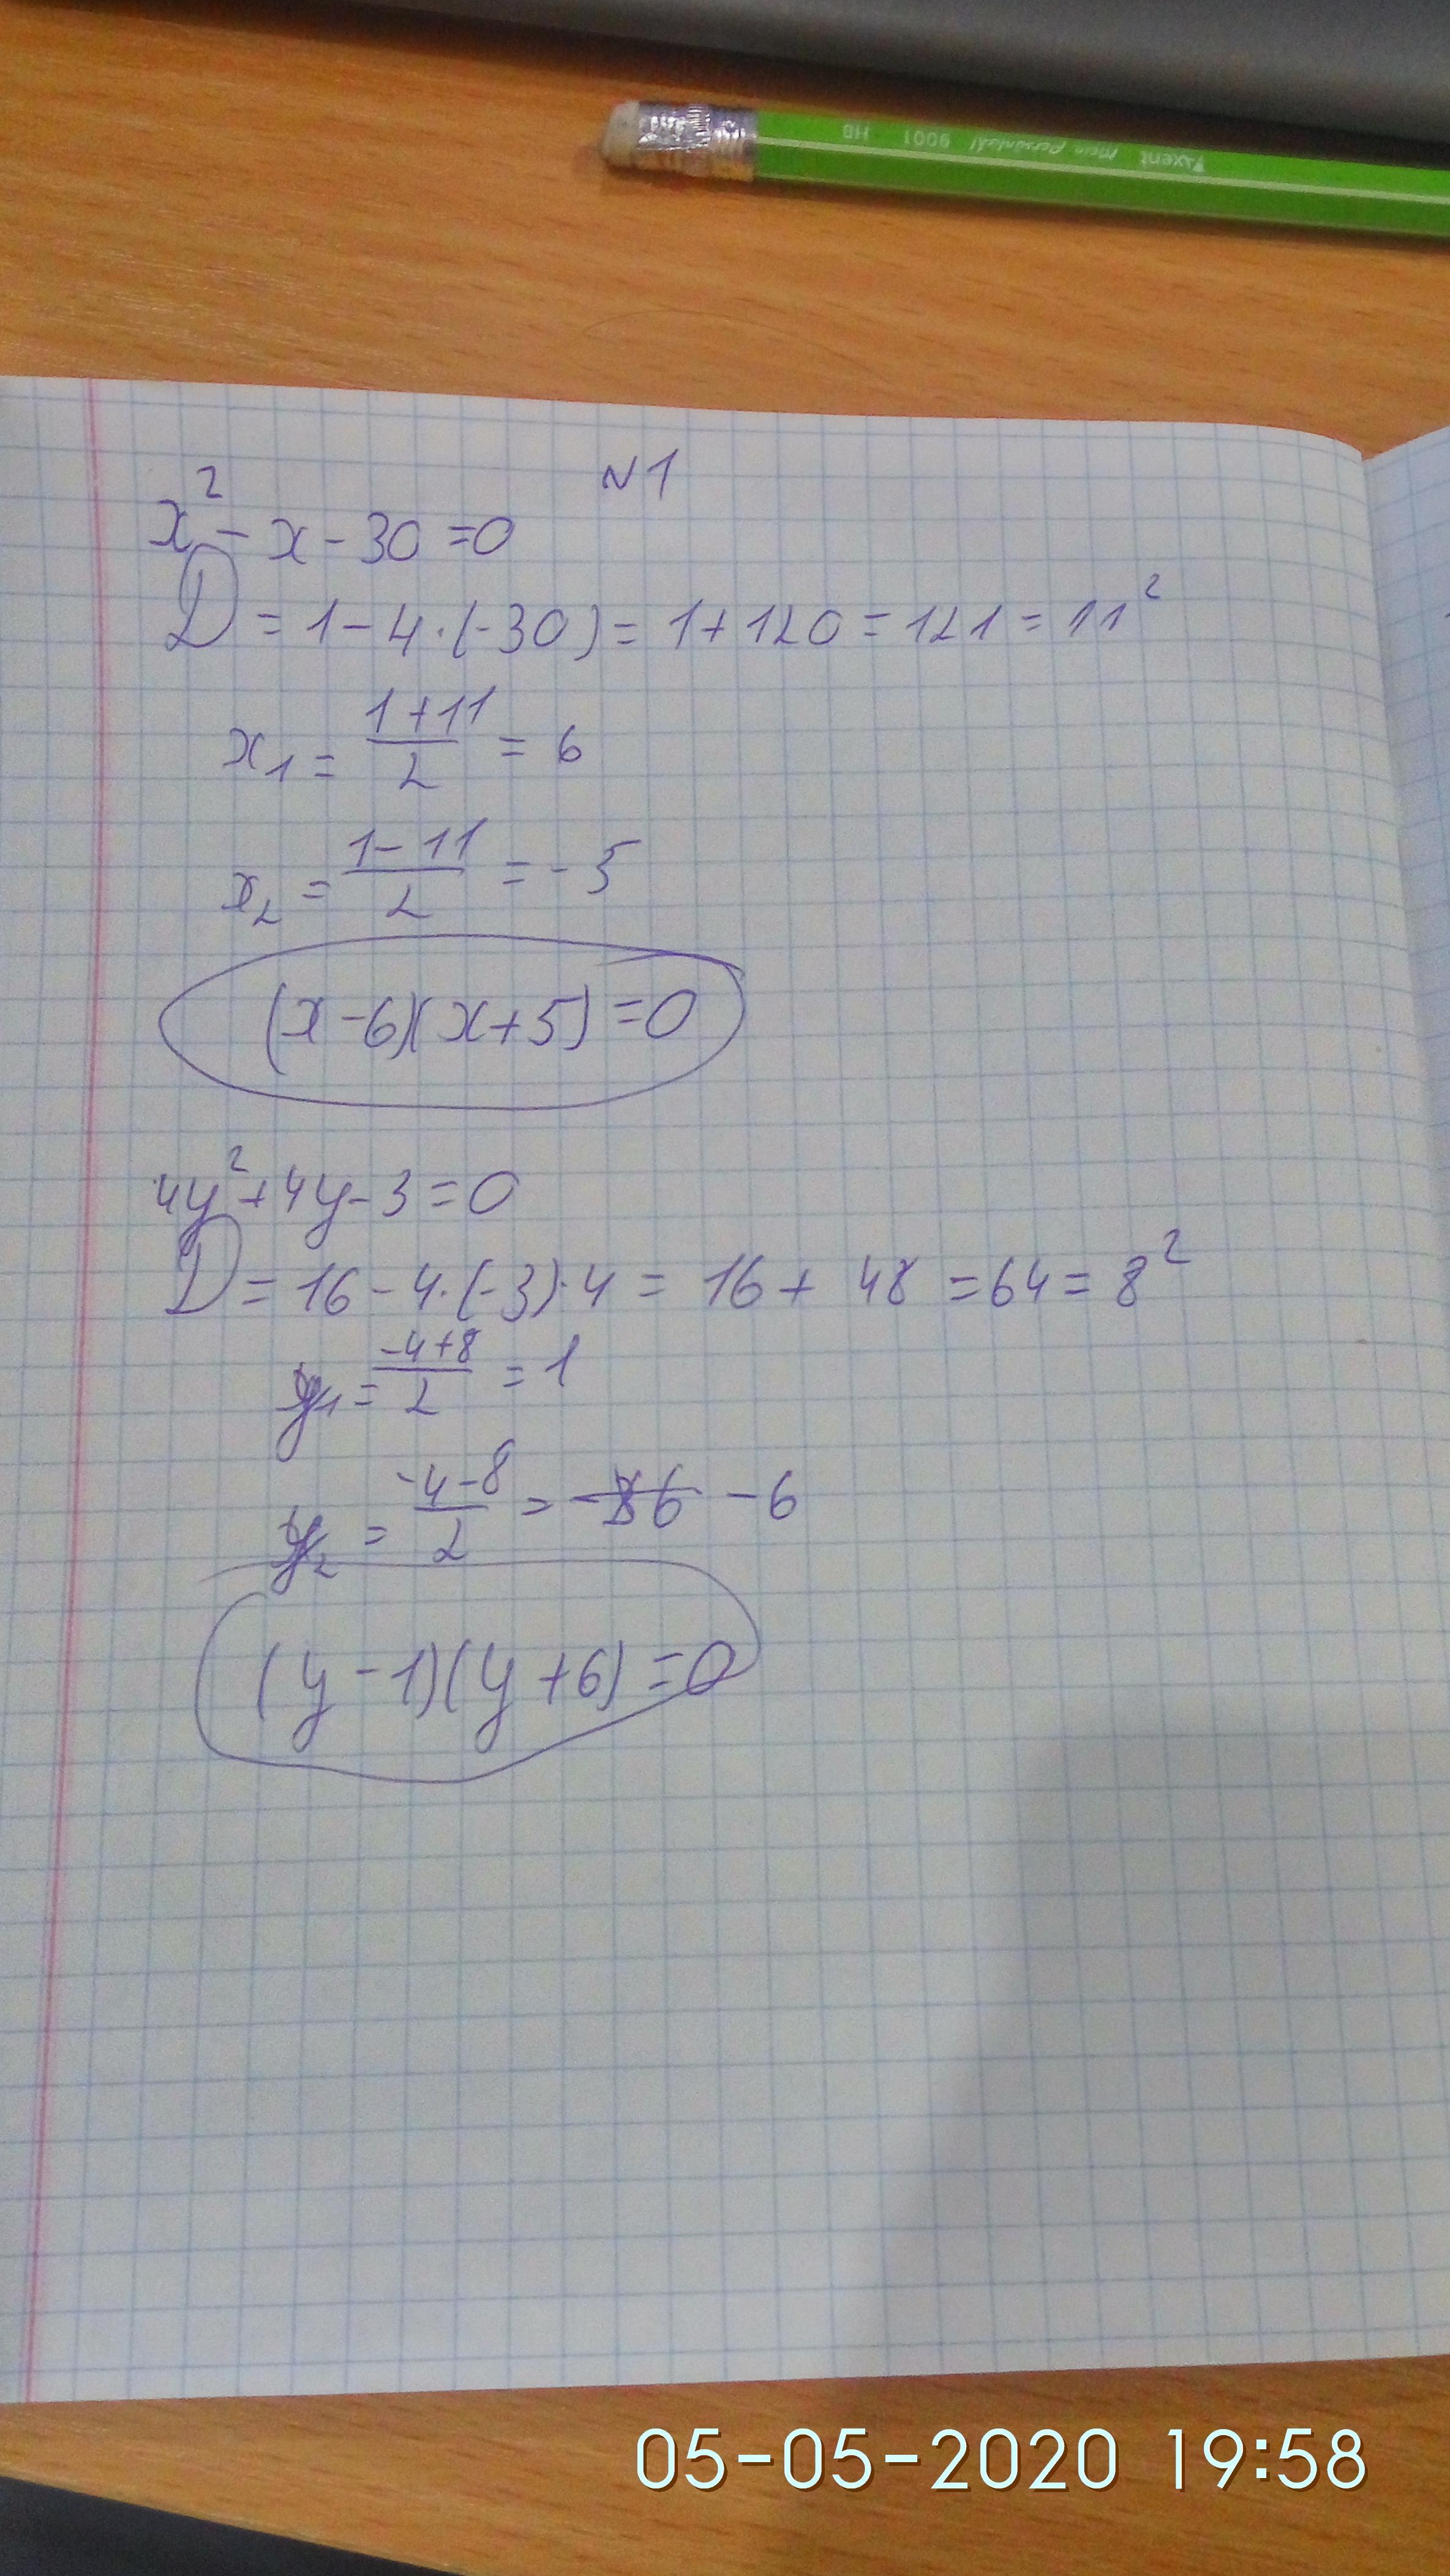 Axent Mein Persönlich! 9001 HB
N1
x² - x - 30 = 0
D = 1 - 4·(-30) = 1 + 120 = 121 = 11²
x₁ = (1+11)/2 = 6
x₂ = (1-11)/2 = -5
(x-6)(x+5)=0
4y²+4y-3=0
D = 16 - 4·(-3)·4 = 16 + 48 = 64 = 8²
y₁ = (-4+8)/2 = 1
y₂ = (-4-8)/2 = -6
(y-1)(y+6)=0
05-05-2020 19:58